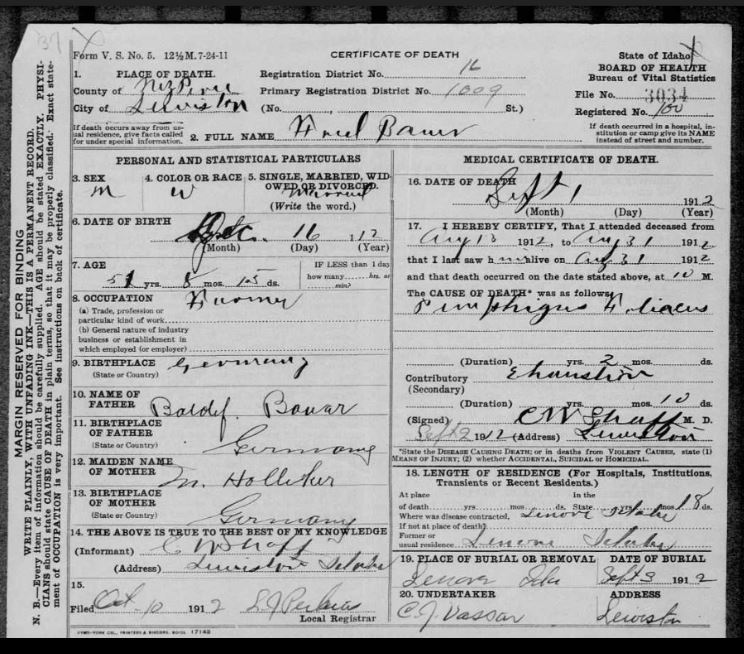 Form V. S. No. 5. 12½M. 7-24-11
CERTIFICATE OF DEATH
State of Idaho
BOARD OF HEALTH
Bureau of Vital Statistics
File No. 3034
Registered No. 100
If death occurred in a hospital, institution or camp give its NAME instead of street and number.
1. PLACE OF DEATH.
County of Nez Perce
City of Lewiston
If death occurs away from usual residence, give facts called for under special information.
Registration District No. 16
Primary Registration District No. 1009
(No. St.)
2. FULL NAME Bauer
PERSONAL AND STATISTICAL PARTICULARS
3. SEX
m
4. COLOR OR RACE
w
5. SINGLE, MARRIED, WIDOWED OR DIVORCED.
Married
(Write the word.)
6. DATE OF BIRTH
16 1 12
(Month) (Day) (Year)
7. AGE
51 yrs. 8 mos. 15 ds.
IF LESS than 1 day
how many hrs. or
min?
8. OCCUPATION Farmer
(a) Trade, profession or
particular kind of work
(b) General nature of industry
business or establishment in
which employed (or employer)
9. BIRTHPLACE Germany
(State or Country)
10. NAME OF
FATHER Bauer
11. BIRTHPLACE
OF FATHER
(State or Country) Germany
12. MAIDEN NAME
OF MOTHER M. Holliker
13. BIRTHPLACE
OF MOTHER
(State or Country) Germany
14. THE ABOVE IS TRUE TO THE BEST OF MY KNOWLEDGE
(Informant) C W Shaff
(Address) Lewiston Idaho
15.
Filed Oct. 10 1912 S.J. Perkins
Local Registrar
MEDICAL CERTIFICATE OF DEATH.
16. DATE OF DEATH
Sept 1 1912
(Month) (Day) (Year)
17. I HEREBY CERTIFY, That I attended deceased from
Aug 13 1912, to Aug 31 1912
that I last saw him alive on Aug 31 1912
and that death occurred on the date stated above, at 10 M.
The CAUSE OF DEATH* was as follows:
Pemphigus Foliaceus
(Duration) yrs. 2 mos. ds.
Contributory Exhaustion
(Secondary)
(Duration) yrs. mos. 10 ds.
(Signed) C W Shaff M. D.
Sept 2 1912 (Address) Lewiston
*State the DISEASE CAUSING DEATH; or in deaths from VIOLENT CAUSES, state (1) MEANS OF INJURY; (2) whether ACCIDENTAL, SUICIDAL or HOMICIDAL.
18. LENGTH OF RESIDENCE (For Hospitals, Institutions, Transients or Recent Residents.)
At place In the
of death yrs. mos. ds. State yrs. mos. 18 ds.
Where was disease contracted, Lenore Idaho
If not at place of death?
Former or
usual residence Lenore Idaho
19. PLACE OF BURIAL OR REMOVAL
Lenore Ida
DATE OF BURIAL
Sept 3 1912
20. UNDERTAKER
C. J. Vassar
ADDRESS
Lewiston
MARGIN RESERVED FOR BINDING
WRITE PLAINLY, WITH UNFADING INK—THIS IS A PERMANENT RECORD.
N. B.—Every item of information should be carefully supplied. AGE should be stated EXACTLY. PHYSI-
CIANS should state CAUSE OF DEATH in plain terms, so that it may be properly classified. Exact state-
ment of OCCUPATION is very important. See instructions on back of certificate.